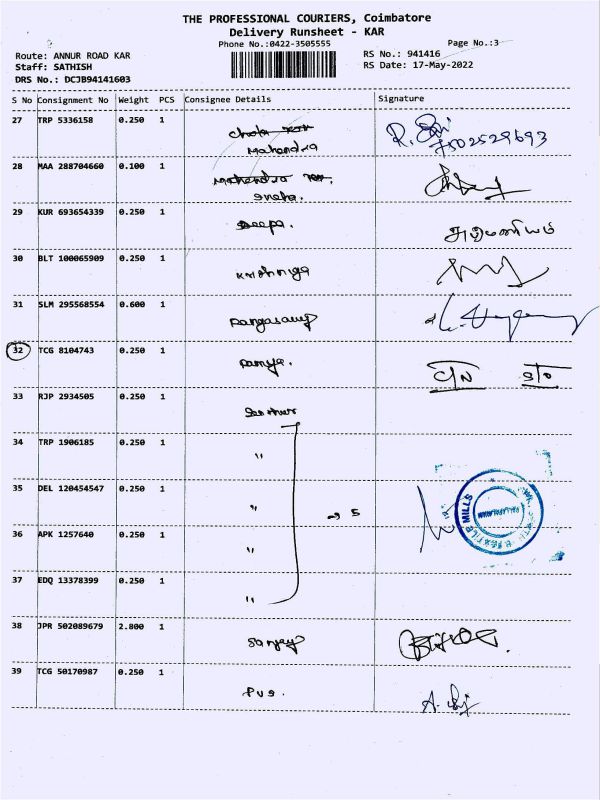 THE PROFESSIONAL COURIERS, Coimbatore
Delivery Runsheet - KAR
Phone No.:0422-3505555
Page No.:3
Route: ANNUR ROAD KAR
RS No.: 941416
Staff: SATHISH
RS Date: 17-May-2022
DRS No.: DCJB94141603
S No Consignment No Weight PCS Consignee Details Signature
27 TRP 5336158 0.250 1
Mahendra
7502529693
28 MAA 288704660 0.100 1 Mahendra
Sneha.
29 KUR 693654339 0.250 1 Deepa.
30 BLT 100065909 0.250 1 Krishniga
31 SLM 295568554 0.600 1 Rangasamy
32 TCG 8104743 0.250 1 Ramya. C/N
33 RJP 2934505 0.250 1
34 TRP 1906185 0.250 1 "
35 DEL 120454547 0.250 1 " 5
TEXTILE MILLS
36 APK 1257640 0.250 1 "
37 EDQ 13378399 0.250 1 "
38 JPR 502089679 2.800 1 Sanjay
39 TCG 50170987 0.250 1